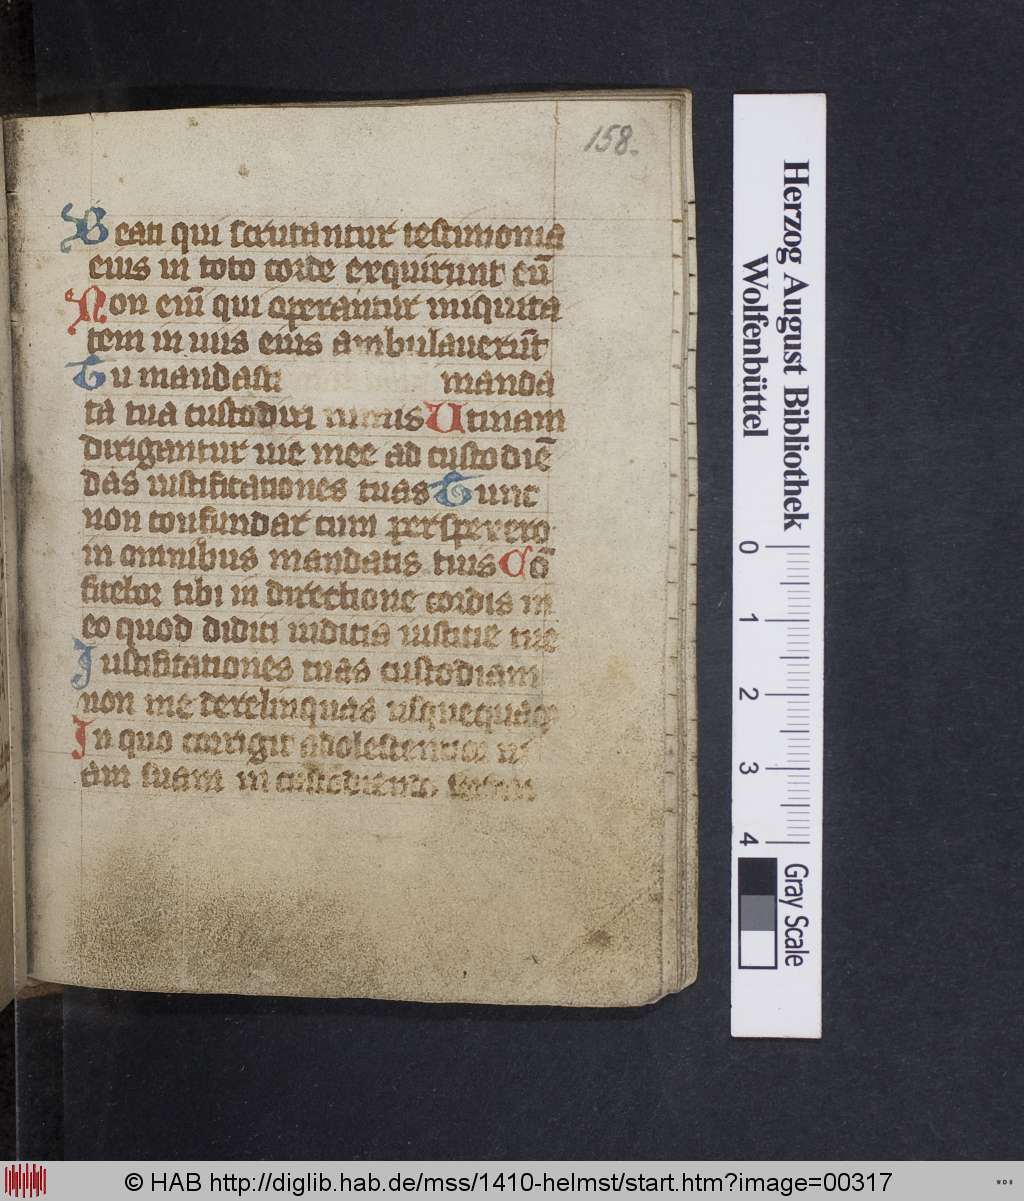 158.
Beati qui scrutantur testimonia
eius in toto corde exquirunt eū
Non eni̅ qui operantur iniquita
tem in uiis eius ambulauerūt
Tu mandasti manda
ta tua custodiri nimis Utinam
dirigantur uie mee ad custodiē
das iustificationes tuas Tunc
non confundar cum perspexero
in omnibus mandatis tuis Cō
fitebor tibi in directione cordis in
eo quod didici iudicia iusticie tue
Iustificationes tuas custodiam
non me derelinquas usquequaq
In quo corrigit adolescentior ui
am suam in custodiendo
Herzog August Bibliothek
Wolfenbüttel
0 1 2 3 4
Gray Scale
© HAB http://diglib.hab.de/mss/1410-helmst/start.htm?image=00317